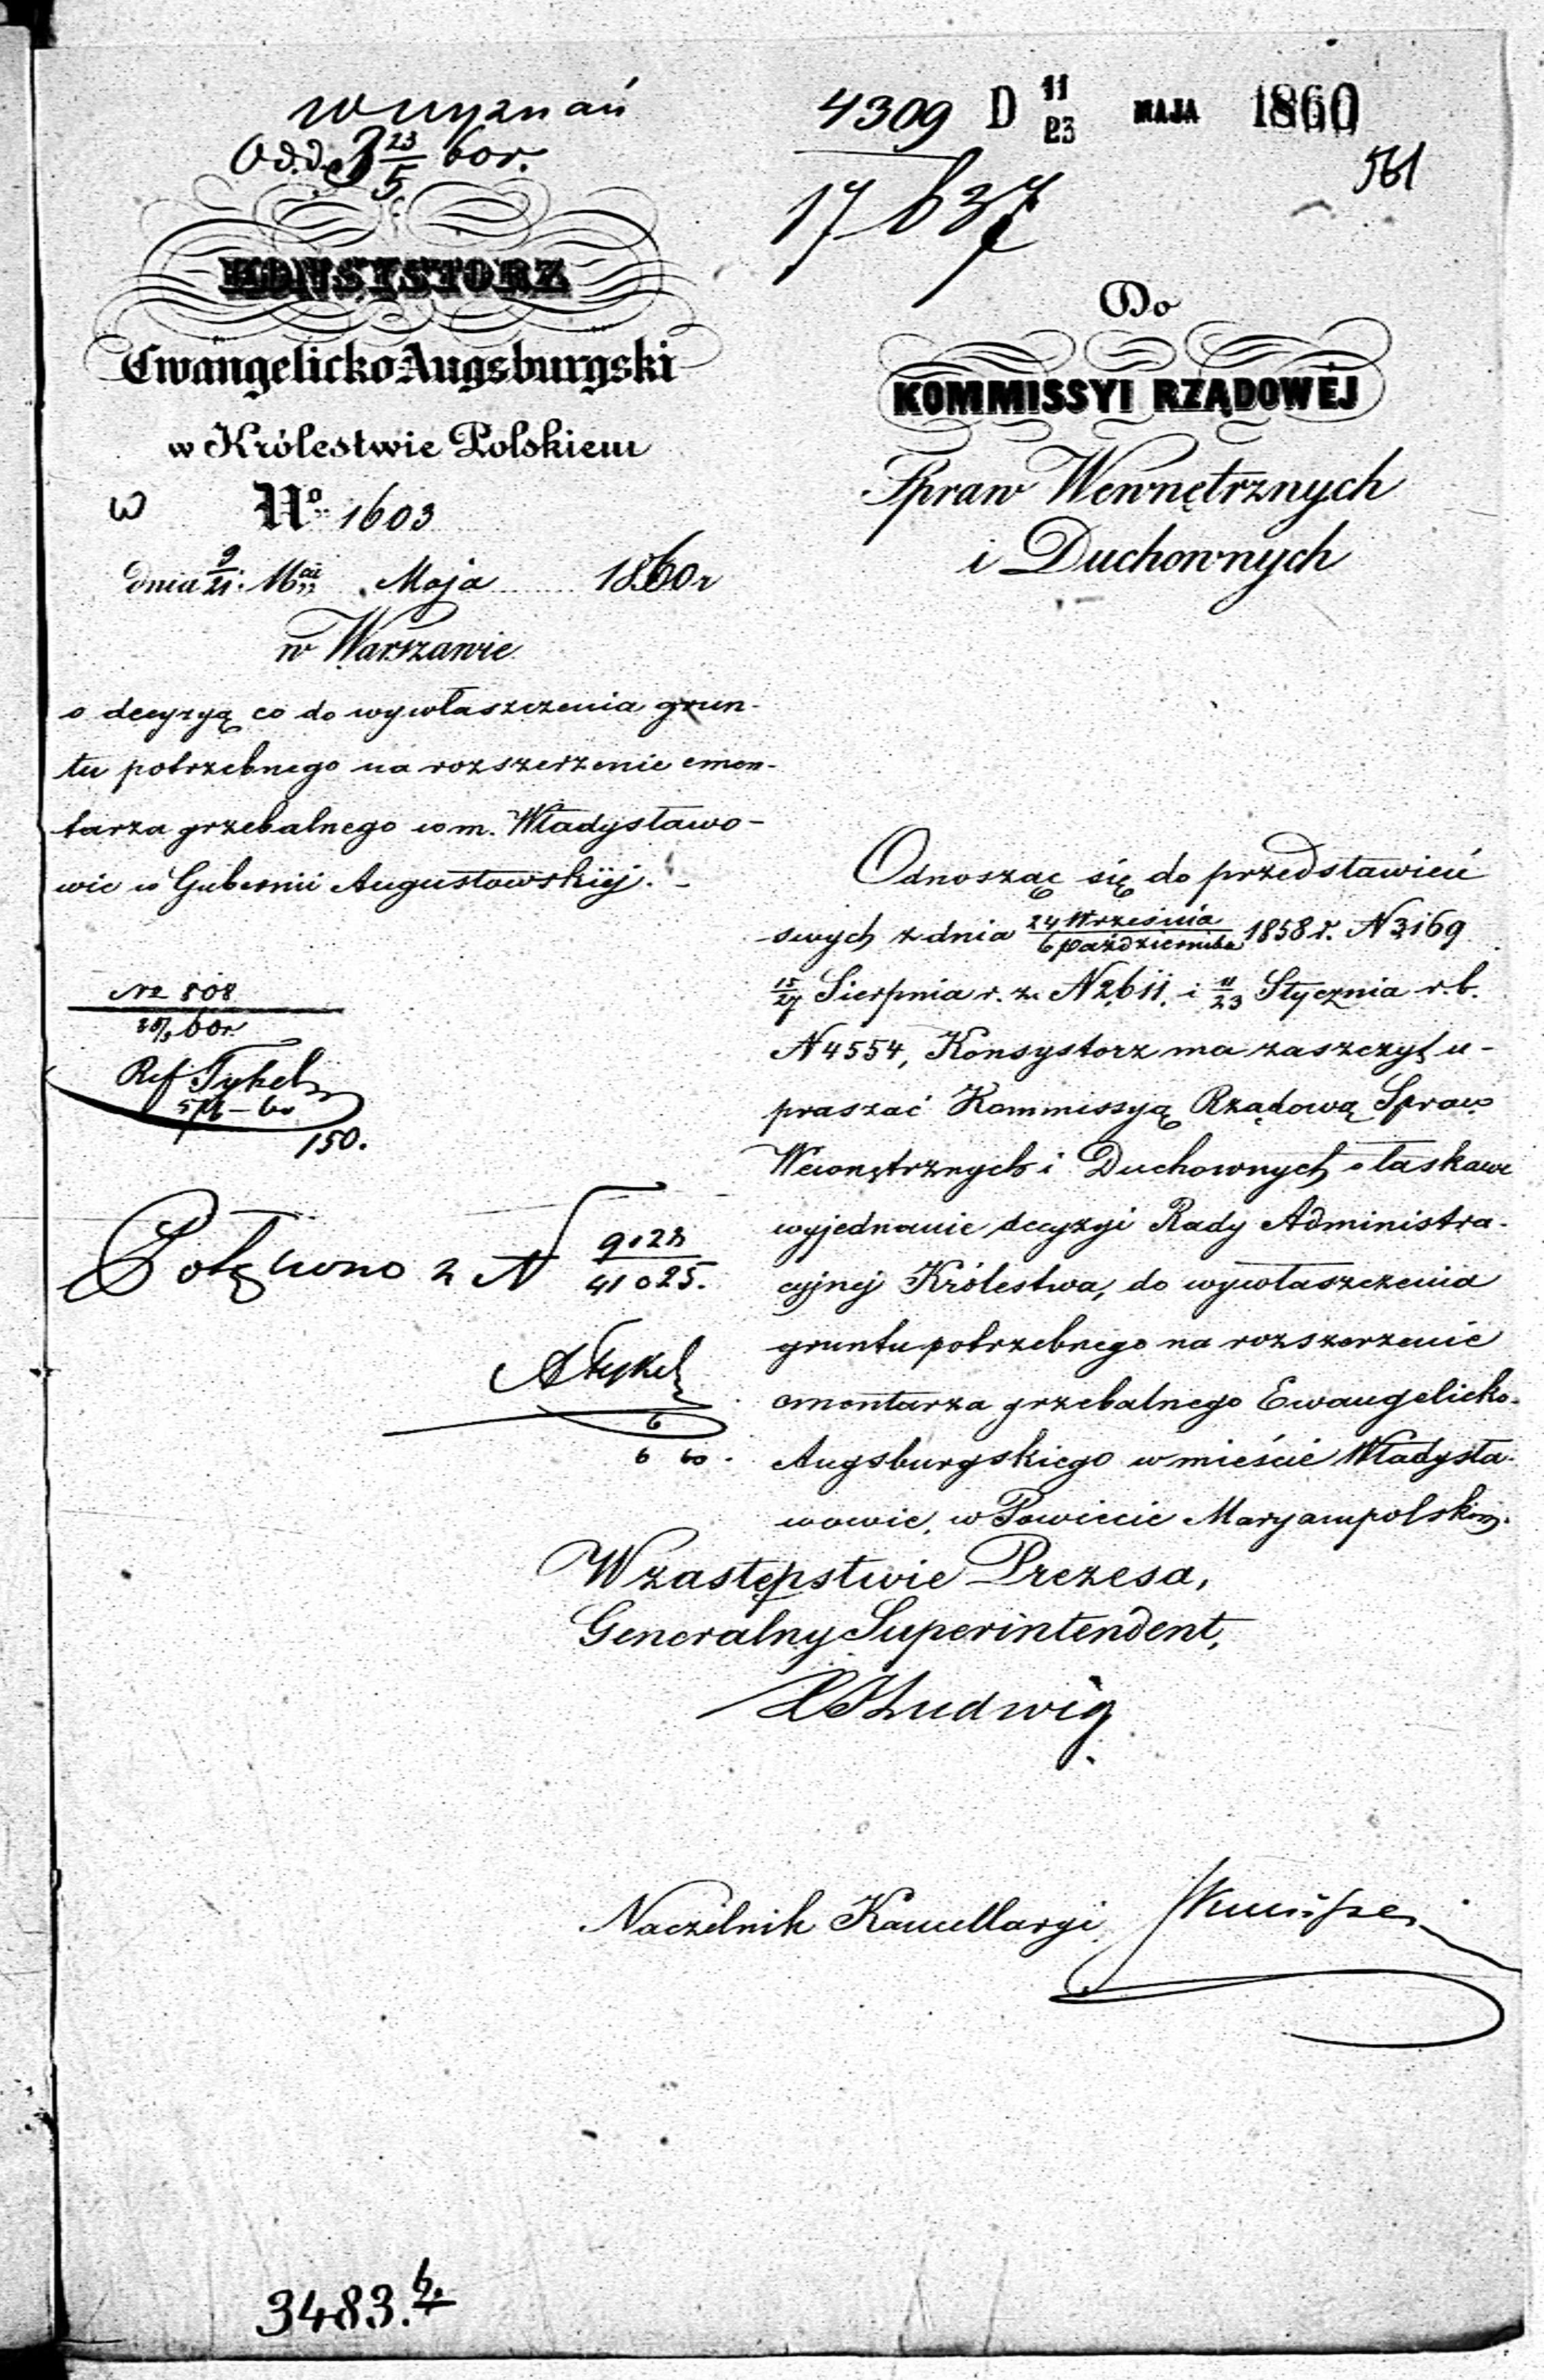 W wyznań
Odd. 3 23/5 60r.
4309 D 11/23 MAJA 1860
561
17637
KONSYSTORZ
Ewangelicko-Augsburgski
w Królestwie Polskiem
w No. 1603
dnia 9/21. Mca Maja 1860 r
w Warszawie
o decyzyą co do wywłaszczenia grun-
tu potrzebnego na rozszerzenie cmen-
tarza grzebalnego w m. Władysławo-
wie w Gubernii Augustowskiéj. -
No 808
60r.
Ref Tykel
150.
Połączono z N 9028/41025.
ATykel
6
6 60.
Do
KOMMISSYI RZĄDOWÉJ
Spraw Wewnętrznych
i Duchownych
Odnosząc się do przedstawień
swych z dnia 24 Września/6 Października 1858 r. N 3169
15/27 Sierpnia r. z. N 2611. i 11/23 Stycznia r. b.
N 4554, Konsystorz ma zaszczyt u-
praszać Kommissyą Rządową Spraw
Wewnętrznych i Duchownych o łaskawe
wyjednanie decyzyi Rady Administra-
cyjnej Królestwa, do wywłaszczenia
gruntu potrzebnego na rozszerzenie
cmentarza grzebalnego Ewangelicko-
Augsburgskiego w mieście Władysła-
wowie, w Powiecie Maryampolskim.
W zastępstwie Prezesa,
Generalny Superintendent,
Ludwig
Naczelnik Kancellaryi
3483. b.